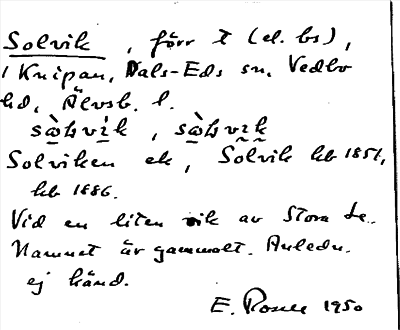 Solvik, förr t (el. bs),
i Knipan, Dals-Eds sn, Vedbo
hd, Älvsb. l.
sòlvìk, sòlvık
Solviken ek, Solvik kb 1851,
kb 1886.
Vid en liten vik av Stora Le.
Namnet är gammalt. Anledn.
ej känd.
E. 1950